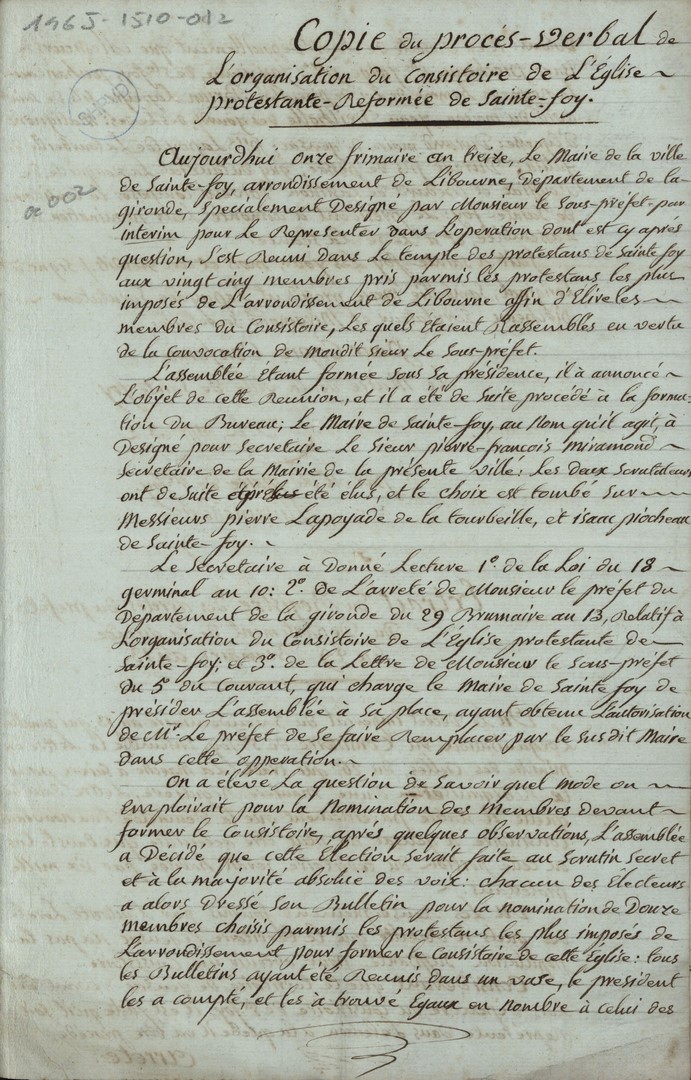 1965-1510-012
Copie du procés-verbal de
L'organisation du Consistoire de L'Église
protestante-Reformée de Sainte-foy.
Aujourdhui onze frimaire an treize, Le Maire de la ville
de Sainte-foy, arrondissement de Libourne, Département de la
gironde, Spécialement Designé par Monsieur le Sous-préfet par
interim pour Le Representer dans L'operation dont est cy après
question, S'est Reuni dans Le temple des protestans de Sainte foy
aux vingt cinq membres pris parmis les protestans les plus
imposés de L'arrondissement de Libourne affin d'Elire les
membres du Consistoire, Les quels étaient Rassemblés en vertu
de la convocation de mondit sieur Le Sous-préfet.
L'assemblée étant formée sous sa présidence, il à annoncé
L'objet de cette Reunion, et il a été de suite procédé a la forma-
tion du Bureau; Le Maire de Sainte-foy, au Nom qu'il agit, à
Designé pour Secretaire Le Sieur pierre-françois miramond
Secretaire de la Mairie de la présente ville: Les deux Scrutateurs
ont de suite été élus, et le choix est tombé sur
Messieurs pierre Lapoyade de la tourbeille, et isaac piocheau
de Sainte-foy.
Le Secretaire à Donné Lecture 1°. de la Loi du 18
germinal an 10: 2°. De L'arreté de Monsieur le préfet du
Département de la gironde du 29 Brumaire an 13, Relatif à
L'organisation du Consistoire de L'Église protestante de
Sainte-foy; et 3°. de la Lettre de Monsieur le Sous-préfet
du 5 du Courant, qui charge le Maire de Sainte foy de
présider L'assemblée à Sa place, ayant obtenu L'autorisation
de Mr. Le préfet de se faire Remplacer par le susdit Maire
dans cette opperation.
On a élevé La question de Savoir quel mode on
Emploirait pour la Nomination des Membres devant
former le Consistoire, aprés quelques observations, L'assemblée
a Décidé que cette Élection serait faite au Scrutin Secret
et à la majorité absolüe des voix: chacun des Électeurs
a alors Dressé son Bulletin pour la nomination de Douze
membres choisis parmis les protestans les plus imposés de
L'arrondissement pour former le Consistoire de cette Église: tous
les Bulletins ayant été Reunis dans un vase, le président
les a compté, et les à trouvé Égaux en nombre à celui des